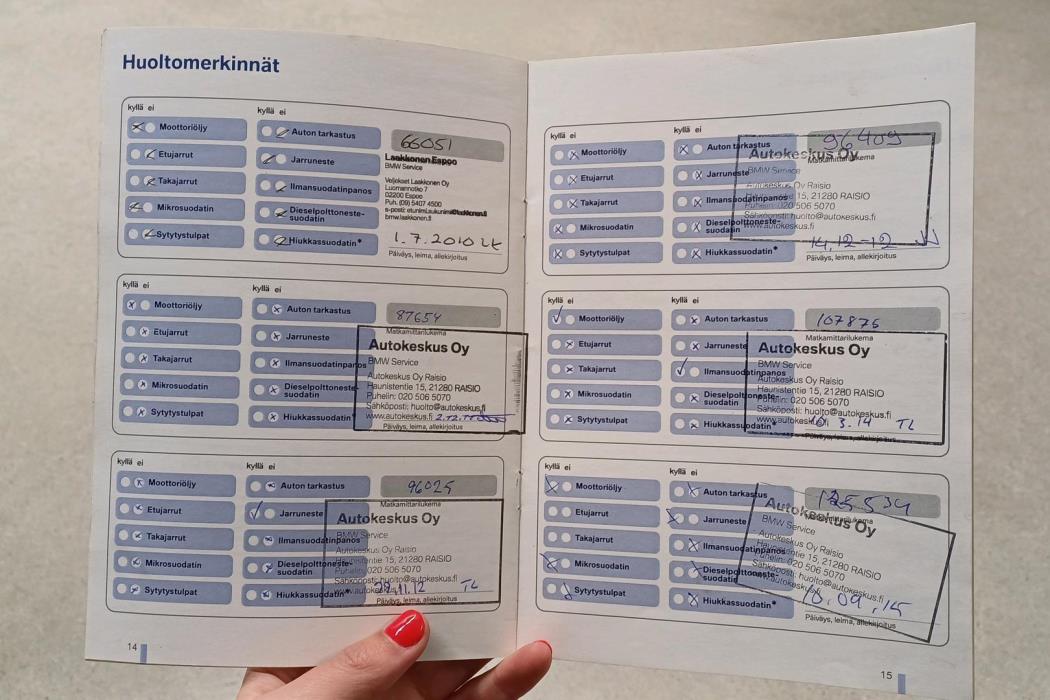 Huoltomerkinnät
kyllä ei
kyllä ei
Moottoriöljy
Etujarrut
Takajarrut
Mikrosuodatin
Sytytystulpat
Auton tarkastus
Jarruneste
Ilmansuodatinpanos
Dieselpolttoneste-
suodatin
Hiukkassuodatin*
66051
Laakkonen Espoo
BMW Service
Veljekset Laakkonen Oy
Luomannotko 7
02200 Espoo
Puh. (09) 5407 4500
bmw.laakkonen.fi
1.7.2010
Päiväys, leima, allekirjoitus
kyllä ei
kyllä ei
Moottoriöljy
Etujarrut
Takajarrut
Mikrosuodatin
Sytytystulpat
Auton tarkastus
Jarruneste
Ilmansuodatinpanos
Dieselpolttoneste-
suodatin
Hiukkassuodatin*
87654
Matkamittarilukema
Autokeskus Oy
BMW Service
Autokeskus Oy Raisio
Haunistentie 15, 21280 RAISIO
Puhelin: 020 506 5070
Sähköposti: huolto@autokeskus.fi
www.autokeskus.fi
Päiväys, leima, allekirjoitus
kyllä ei
kyllä ei
Moottoriöljy
Etujarrut
Takajarrut
Mikrosuodatin
Sytytystulpat
Auton tarkastus
Jarruneste
Ilmansuodatinpanos
Dieselpolttoneste-
suodatin
Hiukkassuodatin*
96025
Matkamittarilukema
Autokeskus Oy
BMW Service
Autokeskus Oy Raisio
Haunistentie 15, 21280 RAISIO
Puhelin: 020 506 5070
Sähköposti: huolto@autokeskus.fi
www.autokeskus.fi
TL
Päiväys, leima, allekirjoitus
14
kyllä ei
kyllä ei
Moottoriöljy
Etujarrut
Takajarrut
Mikrosuodatin
Sytytystulpat
Auton tarkastus
Jarruneste
Ilmansuodatinpanos
Dieselpolttoneste-
suodatin
Hiukkassuodatin*
96409
Matkamittarilukema
Autokeskus Oy
BMW Service
Autokeskus Oy Raisio
Haunistentie 15, 21280 RAISIO
Puhelin: 020 506 5070
Sähköposti: huolto@autokeskus.fi
www.autokeskus.fi
14,12-12
Päiväys, leima, allekirjoitus
kyllä ei
kyllä ei
Moottoriöljy
Etujarrut
Takajarrut
Mikrosuodatin
Sytytystulpat
Auton tarkastus
Jarruneste
Ilmansuodatinpanos
Dieselpolttoneste-
suodatin
Hiukkassuodatin*
107875
Matkamittarilukema
Autokeskus Oy
BMW Service
Autokeskus Oy Raisio
Haunistentie 15, 21280 RAISIO
Puhelin: 020 506 5070
Sähköposti: huolto@autokeskus.fi
www.autokeskus.fi
3.14 TL
Päiväys, leima, allekirjoitus
kyllä ei
kyllä ei
Moottoriöljy
Etujarrut
Takajarrut
Mikrosuodatin
Sytytystulpat
Auton tarkastus
Jarruneste
Ilmansuodatinpanos
Dieselpolttoneste-
suodatin
Hiukkassuodatin*
Matkamittarilukema
Autokeskus Oy
BMW Service
Autokeskus Oy Raisio
Haunistentie 15, 21280 RAISIO
Puhelin: 020 506 5070
Sähköposti: huolto@autokeskus.fi
www.autokeskus.fi
10.04.15
Päiväys, leima, allekirjoitus
15